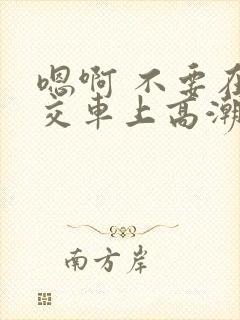 嗯啊 不要在
交车上高潮
南方岸